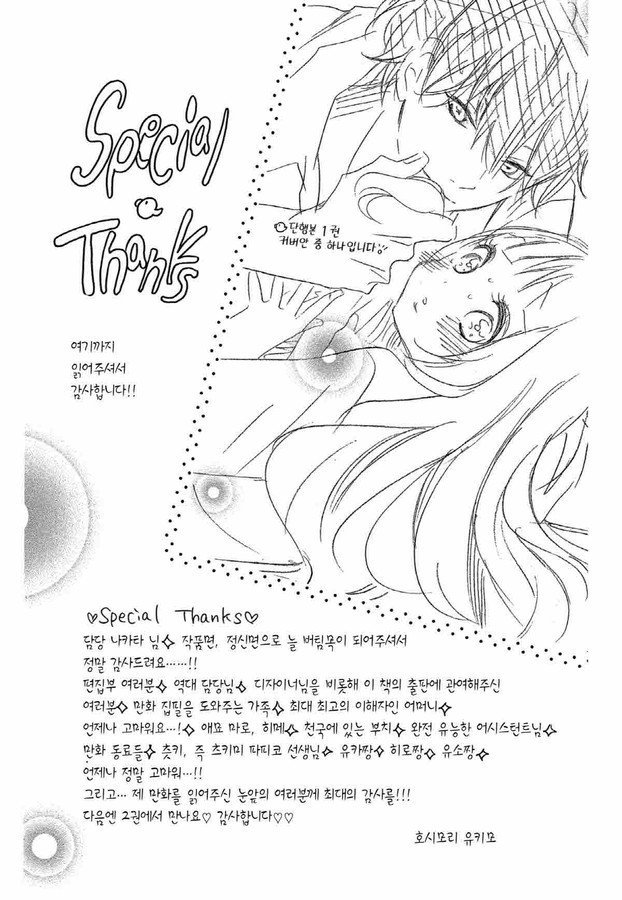 Special
Thanks
단행본 1권
커버안 중 하나입니다
여기까지
읽어주셔서
감사합니다!!
♡Special Thanks♡
담당 나카타 님✧ 작품면, 정신면으로 늘 버팀목이 되어주셔서
정말 감사드려요……!!
편집부 여러분✧ 역대 담당님✧ 디자이너님을 비롯해 이 책의 출판에 관여해주신
여러분✧ 만화 집필을 도와주는 가족✧ 최대 최고의 이해자인 어머니✧
언제나 고마워요…! 애묘 마로, 히메✧ 천국에 있는 부치✧ 완전 유능한 어시스턴트님✧
만화 동료들✧ 츳키, 즉 츠키미 파피코 선생님✧ 유카짱✧ 히로짱✧ 유소짱✧
언제나 정말 고마워…!!
그리고… 제 만화를 읽어주신 눈앞의 여러분께 최대의 감사를!!!
다음엔 2권에서 만나요♡ 감사합니다♡♡
호시모리 유키모